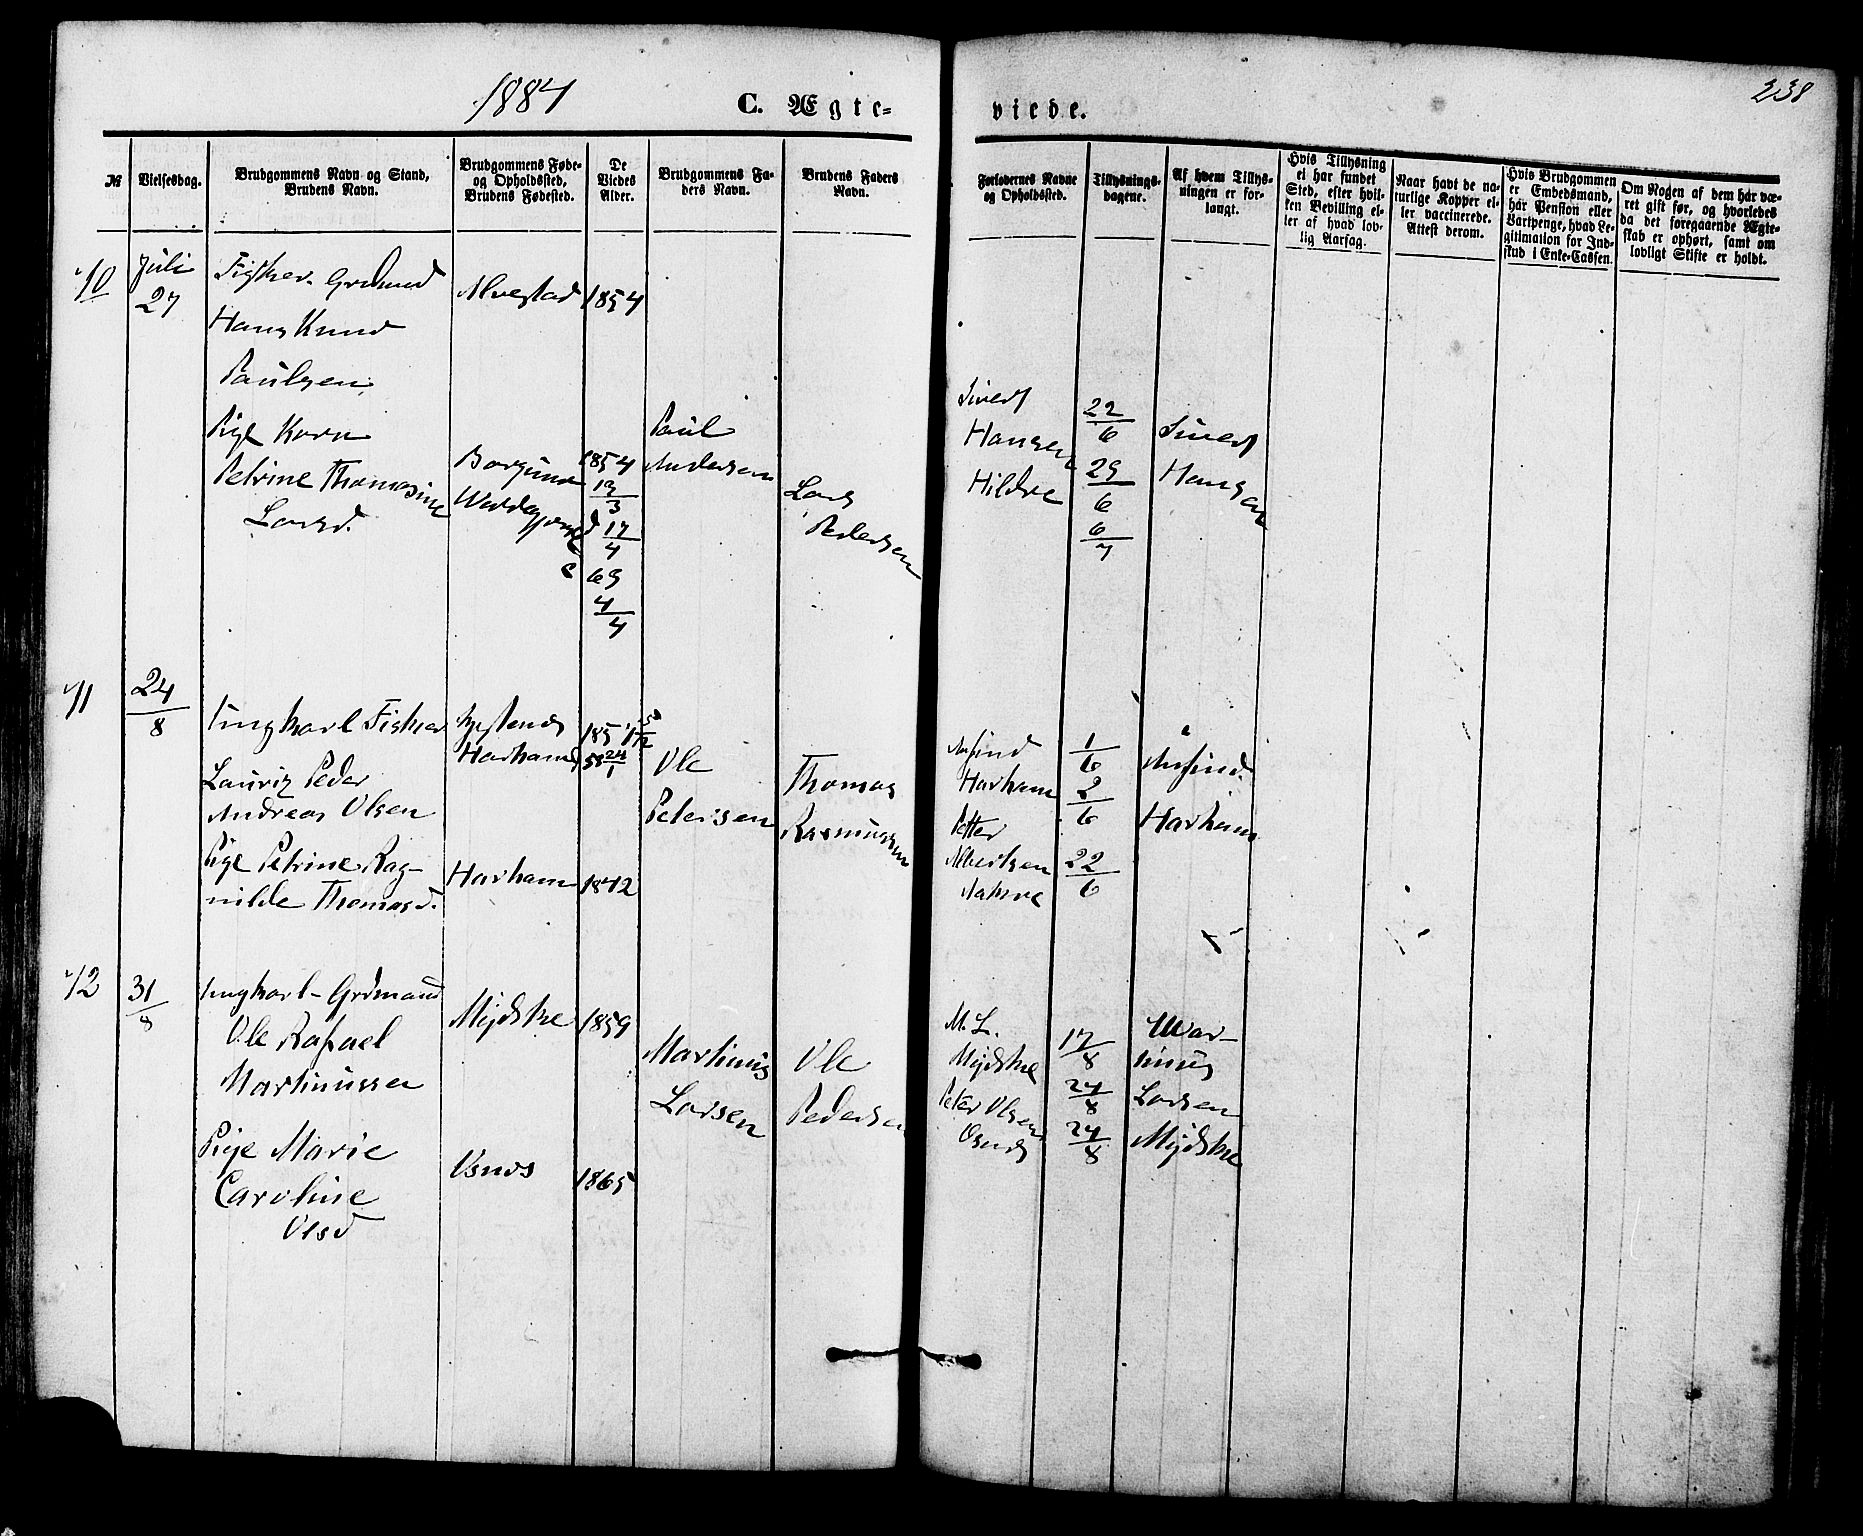 1884
C. Ægte-
viede.
238
№
Vielsesdag.
Brudgommens Navn og Stand,
Brudens Navn.
Brudgommens Føde-
og Opholdssted,
Brudens Fødested.
De
Viedes
Alder.
Brudgommens Fa-
ders Navn.
Brudens Faders
Navn.
Forlovernes Navne
og Opholdssted.
Tillysnings-
dagene.
Af hvem Tillys-
ningen er for-
langt.
Hvis Tillysning
ei har fundet
Sted, efter hvil-
ken Bevilling el-
ler af hvad lov-
lig Aarsag.
Naar havt de na-
turlige Kopper el-
ler vaccinerede.
Attest derom.
Hvis Brudgommen
er Embedsmand,
har Pension eller
Vartpenge, hvad Le-
gitimation for Ind-
skud i Enke-Cassen.
Om Nogen af dem har væ-
ret gift før, og hvorledes
da det foregaaende Ægte-
skab er ophørt, samt om
lovligt Skifte er holdt.
10
Juli
27
Fisker
Hans Knud
Paulsen
Alvestad
1854
Pige Karn
Petrine Thomasine
Larsd.
Borgund
1854
19/3
d 17/4
c 69
4/4
Paul
Andersen
Lars
Pedersen
Sivert
Hansen
Hildre
22/6
29/6
6/7
Sivert
Hansen
11
24/8
Ungkarl Fisker
Lauriz Peder
Andreas Olsen
Harham
1857
24/1
Ole
Petersen
Thomas
Rasmussen
Pige Petrine Rag-
nilde Thomasd.
Harham
1842
Harham
Petter
Albertsen
1/6
2/6
22/6
Harham
12
31/8
Ungkarl
Ole Rafael
Martinussen
Mijdske
1859
Martinus
Larsen
Ole
Pedersen
Pige Marie
Caroline
Olsd
Usnes
1865
M. L.
Mijdske
Peter Olsen
17/8
24/8
24/8
Mar-
tinus
Larsen
Mijdske